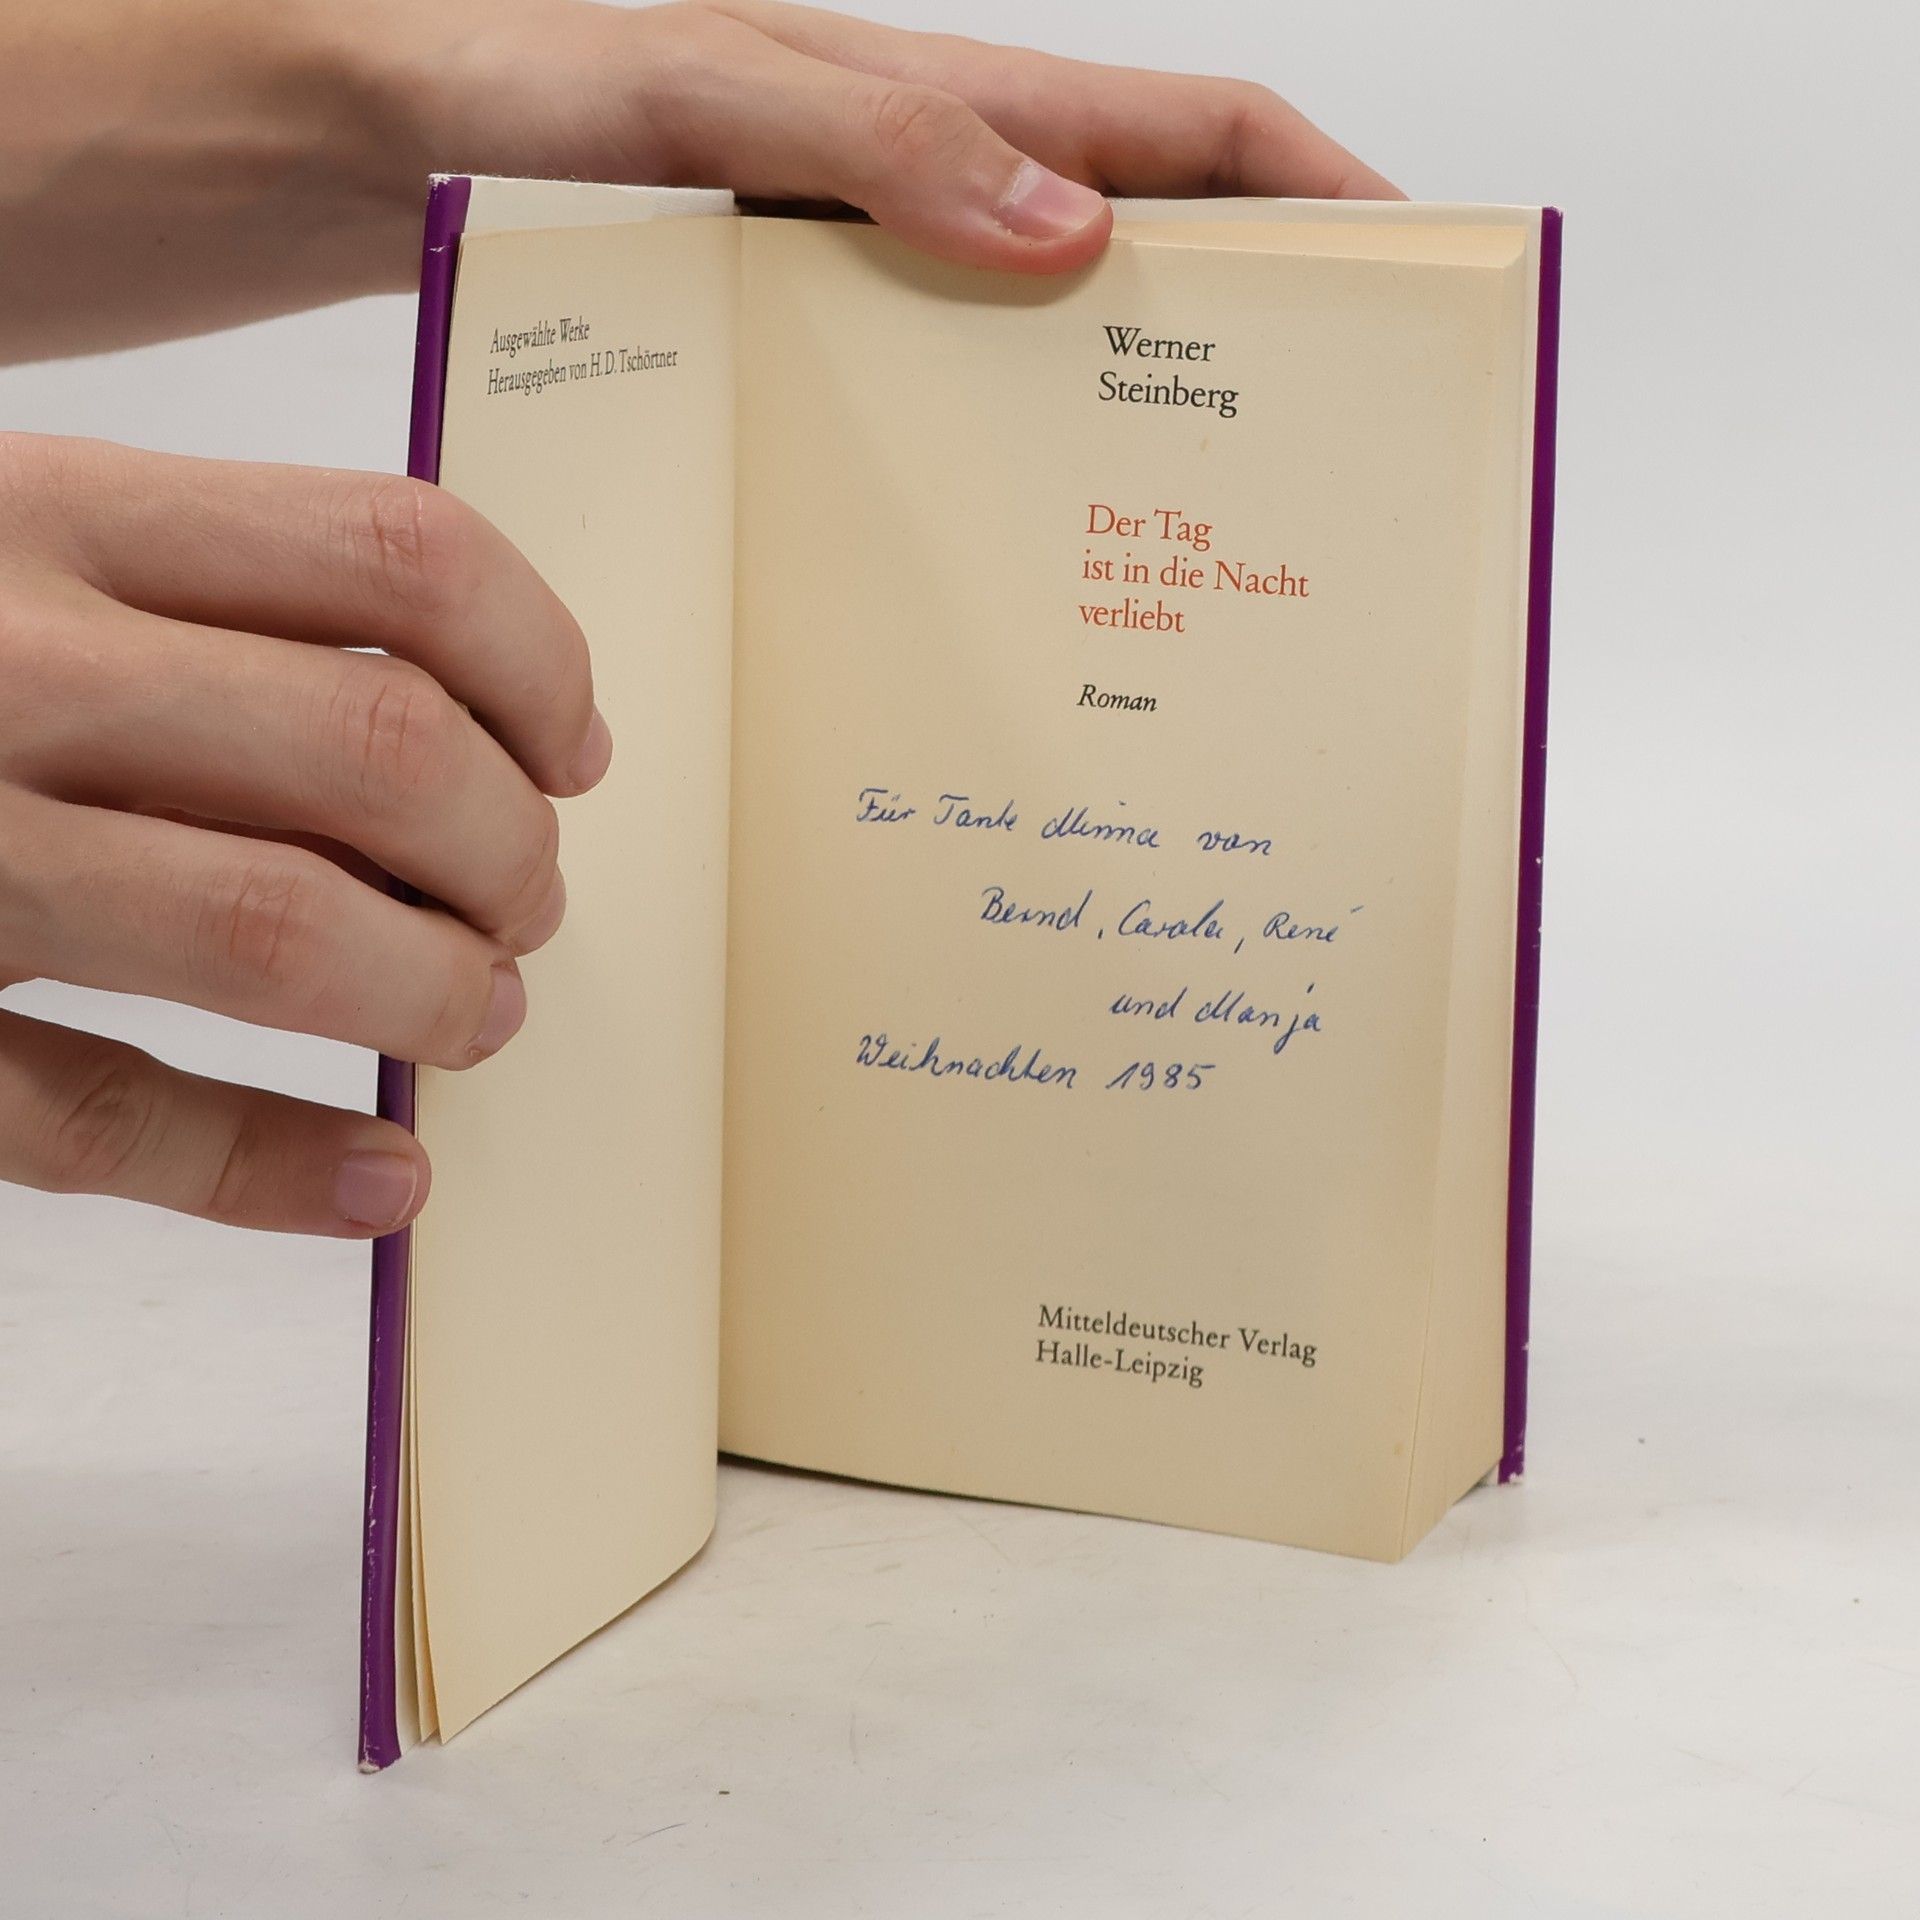 Ausgewählte Werke
Herausgegeben von H. D. Tschörtner
Werner
Steinberg
Der Tag
ist in die Nacht
verliebt
Roman
Für Tante Minna von
Bernd, Carola, René
und Manja
Weihnachten 1985
Mitteldeutscher Verlag
Halle-Leipzig